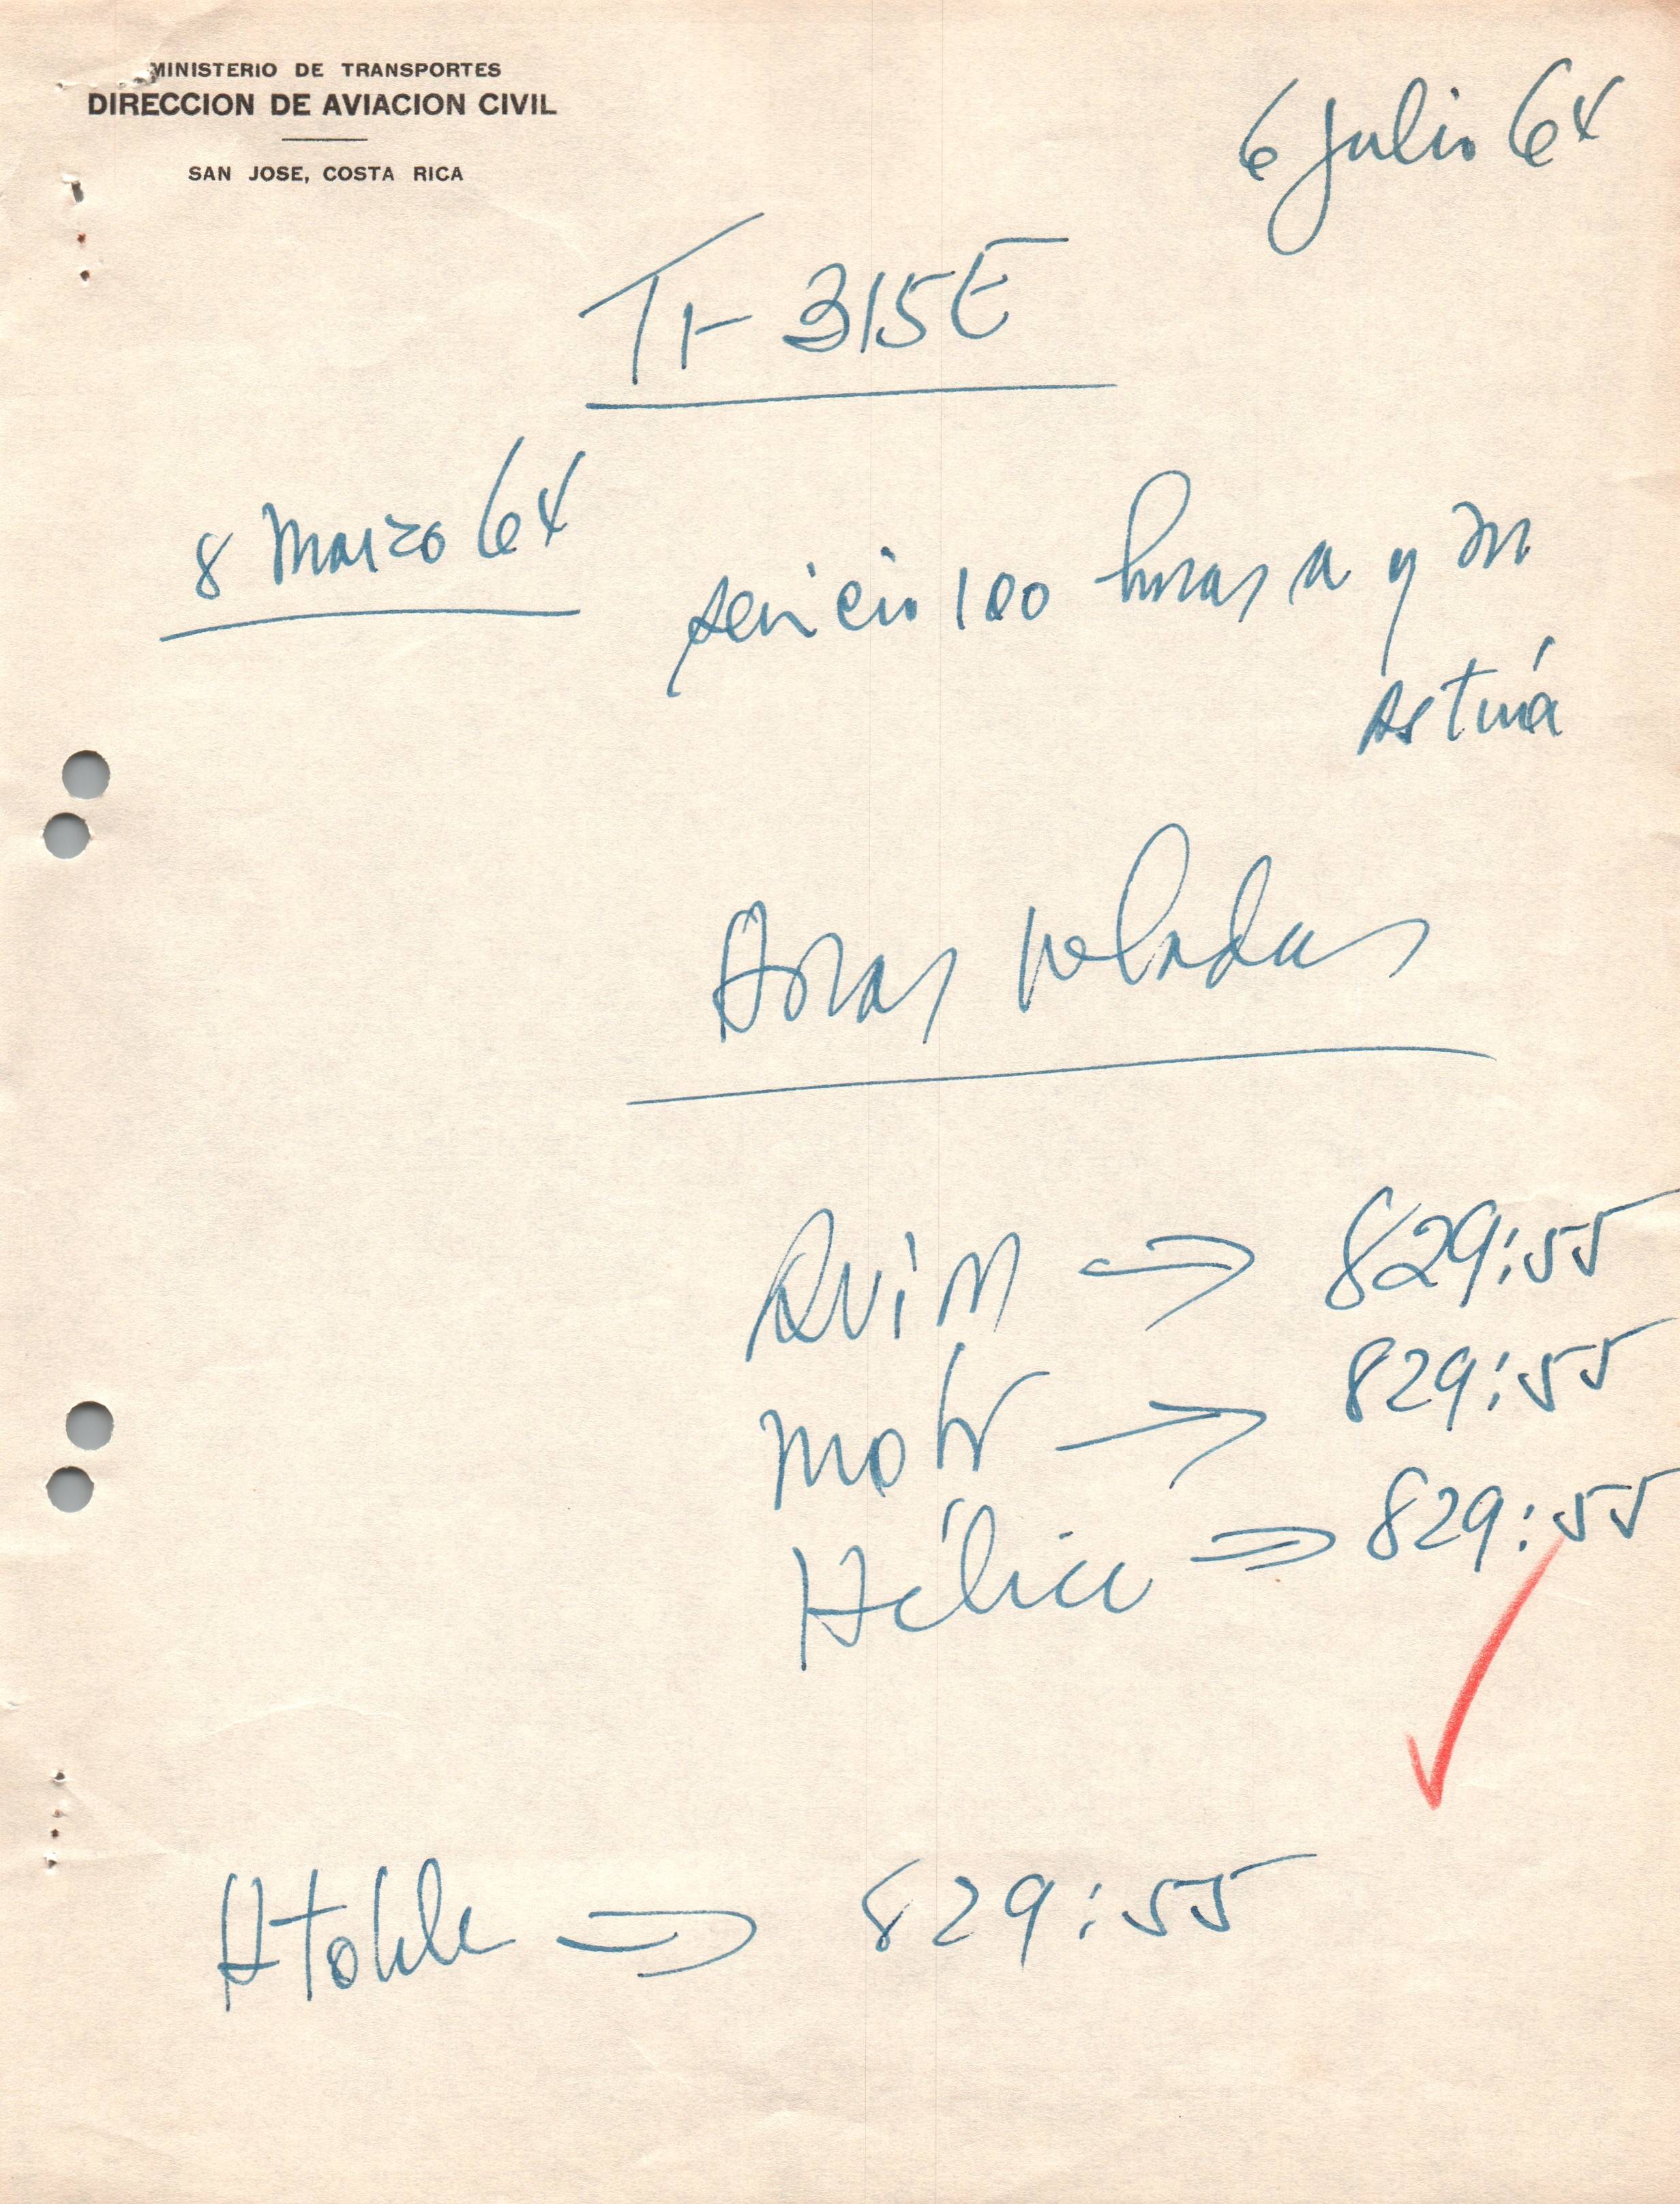 MINISTERIO DE TRANSPORTES
DIRECCION DE AVIACION CIVIL
SAN JOSE, COSTA RICA
6 Julio 64
TI-315E
8 Marzo 64
servicio 100 horas a y m
Horas voladas
829:55
Motor → 829:55
Hélice ⇒ 829:55
⇒ 829:55